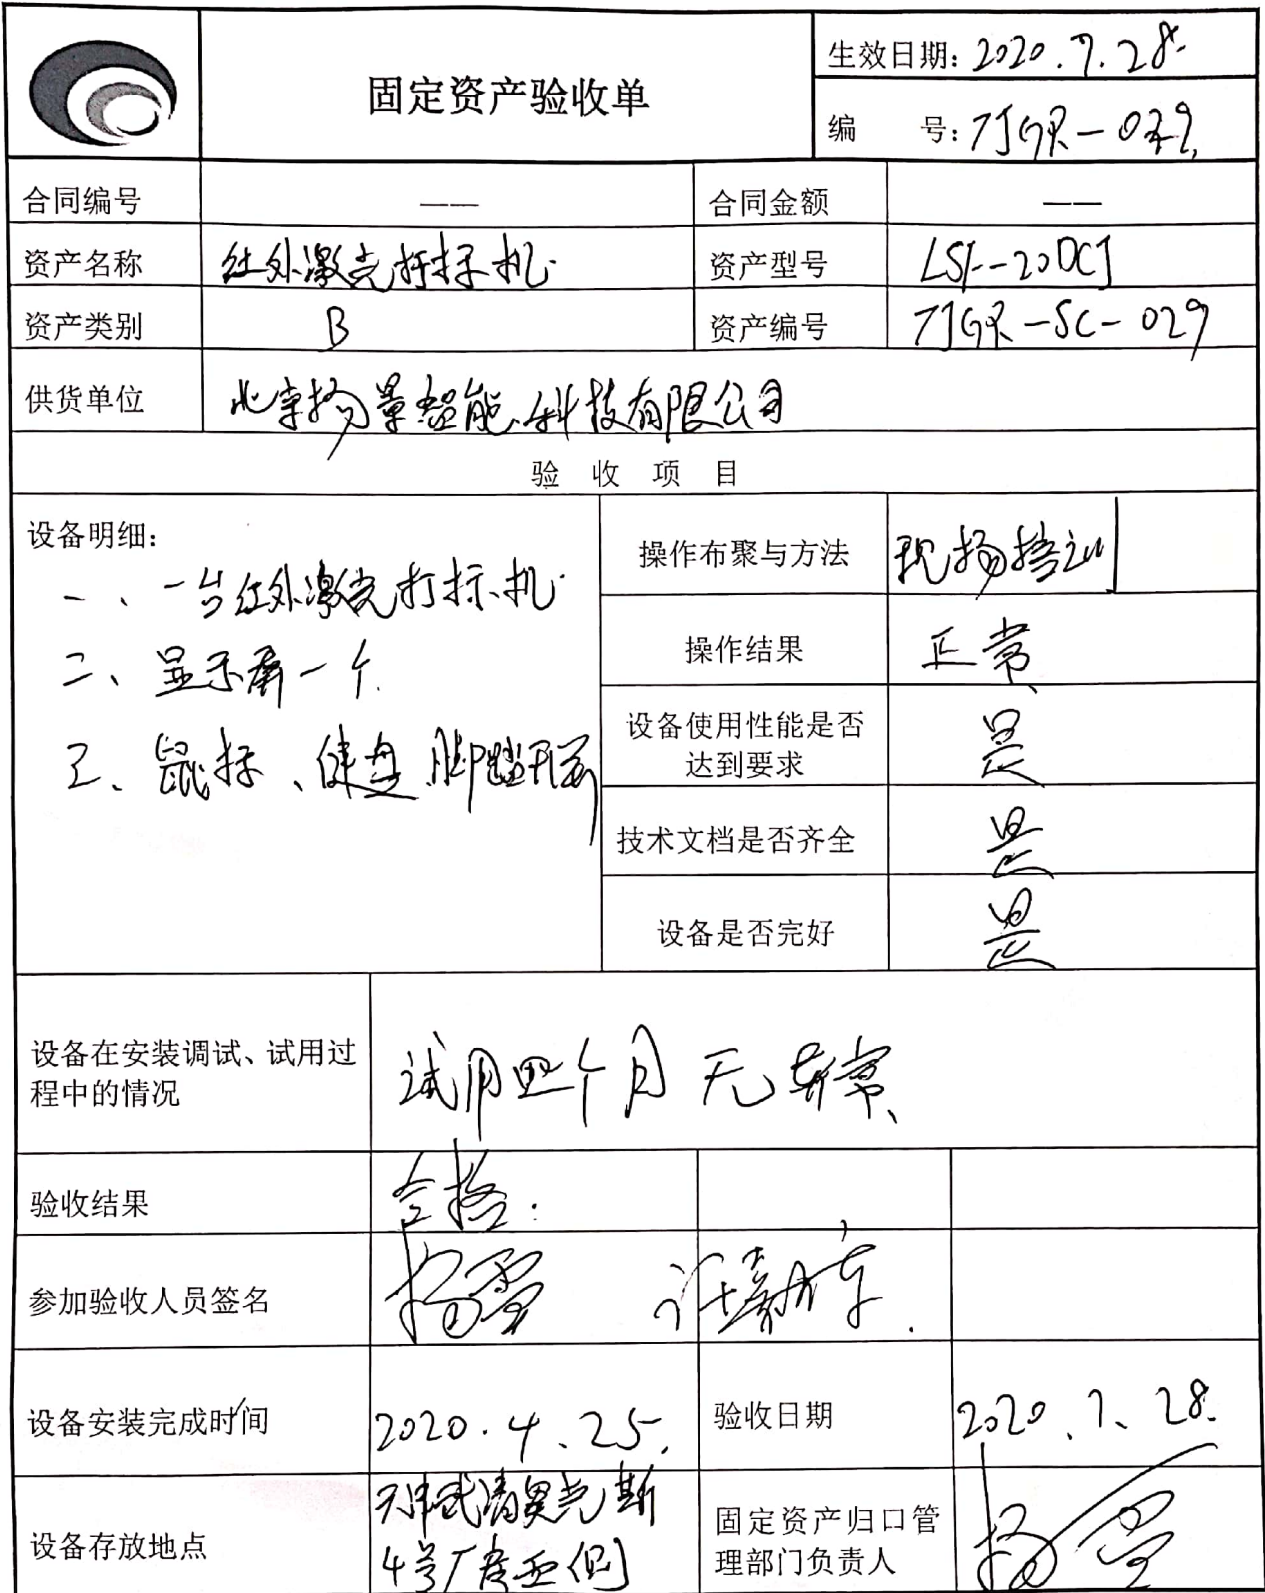 固定资产验收单
生效日期：2020.7.28.
编 号：TJGR-029
合同编号 —— 合同金额 ——
资产名称 红外激光打标机 资产型号 LSF-20DCJ
资产类别 B 资产编号 TJGR-SC-029
供货单位 北京扬量智能科技有限公司
验 收 项 目
设备明细：
一、一台红外激光打标机
二、显示屏一个
三、鼠标、健盘 脚踏开关
操作布聚与方法 现场培训
操作结果 正常
设备使用性能是否
达到要求 是
技术文档是否齐全 是
设备是否完好 是
设备在安装调试、试用过
程中的情况 试用四个月 无异常
验收结果 合格.
参加验收人员签名 杨雪
设备安装完成时间 2020.4.25. 验收日期 2020.7.28.
设备存放地点 天津武清奥克斯
4号厂房西侧
固定资产归口管
理部门负责人 杨雪